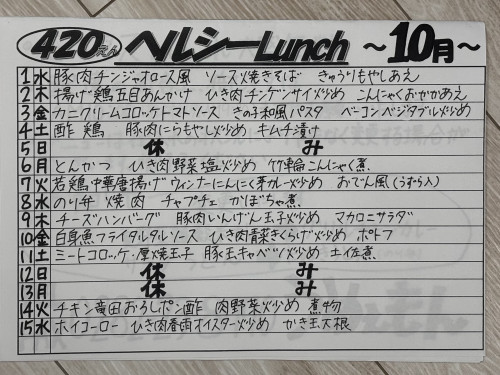 420えん ヘルシーLunch ～10月～
1 水 豚肉チンジャオロース風 ソース焼きそば きゅうりもやしあえ
2 木 揚げ鶏五目あんかけ ひき肉チンゲンサイ炒め こんにゃくおかかあえ
3 金 カニクリームコロッケトマトソース きの子和風パスタ ベーコンベジタブル炒め
4 土 酢鶏 豚肉にらもやし炒め キムチ漬け
5 日 休み
6 月 とんかつ ひき肉野菜塩炒め 竹輪こんにゃく煮
7 火 若鶏中華唐揚げ ウィンナーにんにく芽カレー炒め おでん風(うずら入)
8 水 のり弁 焼肉 チャプチェ かぼちゃ煮
9 木 チーズハンバーグ 豚肉いんげん玉子炒め マカロニサラダ
10 金 白身魚フライタルタルソース ひき肉青菜きくらげ炒め ポトフ
11 土 ミートコロッケ・厚焼玉子 豚玉キャベツ炒め 土佐煮
12 日 休み
13 月 休み
14 火 チキン竜田おろしポン酢 肉野菜炒め 煮物
15 水 ホイコーロー ひき肉春雨オイスター炒め かき玉大根